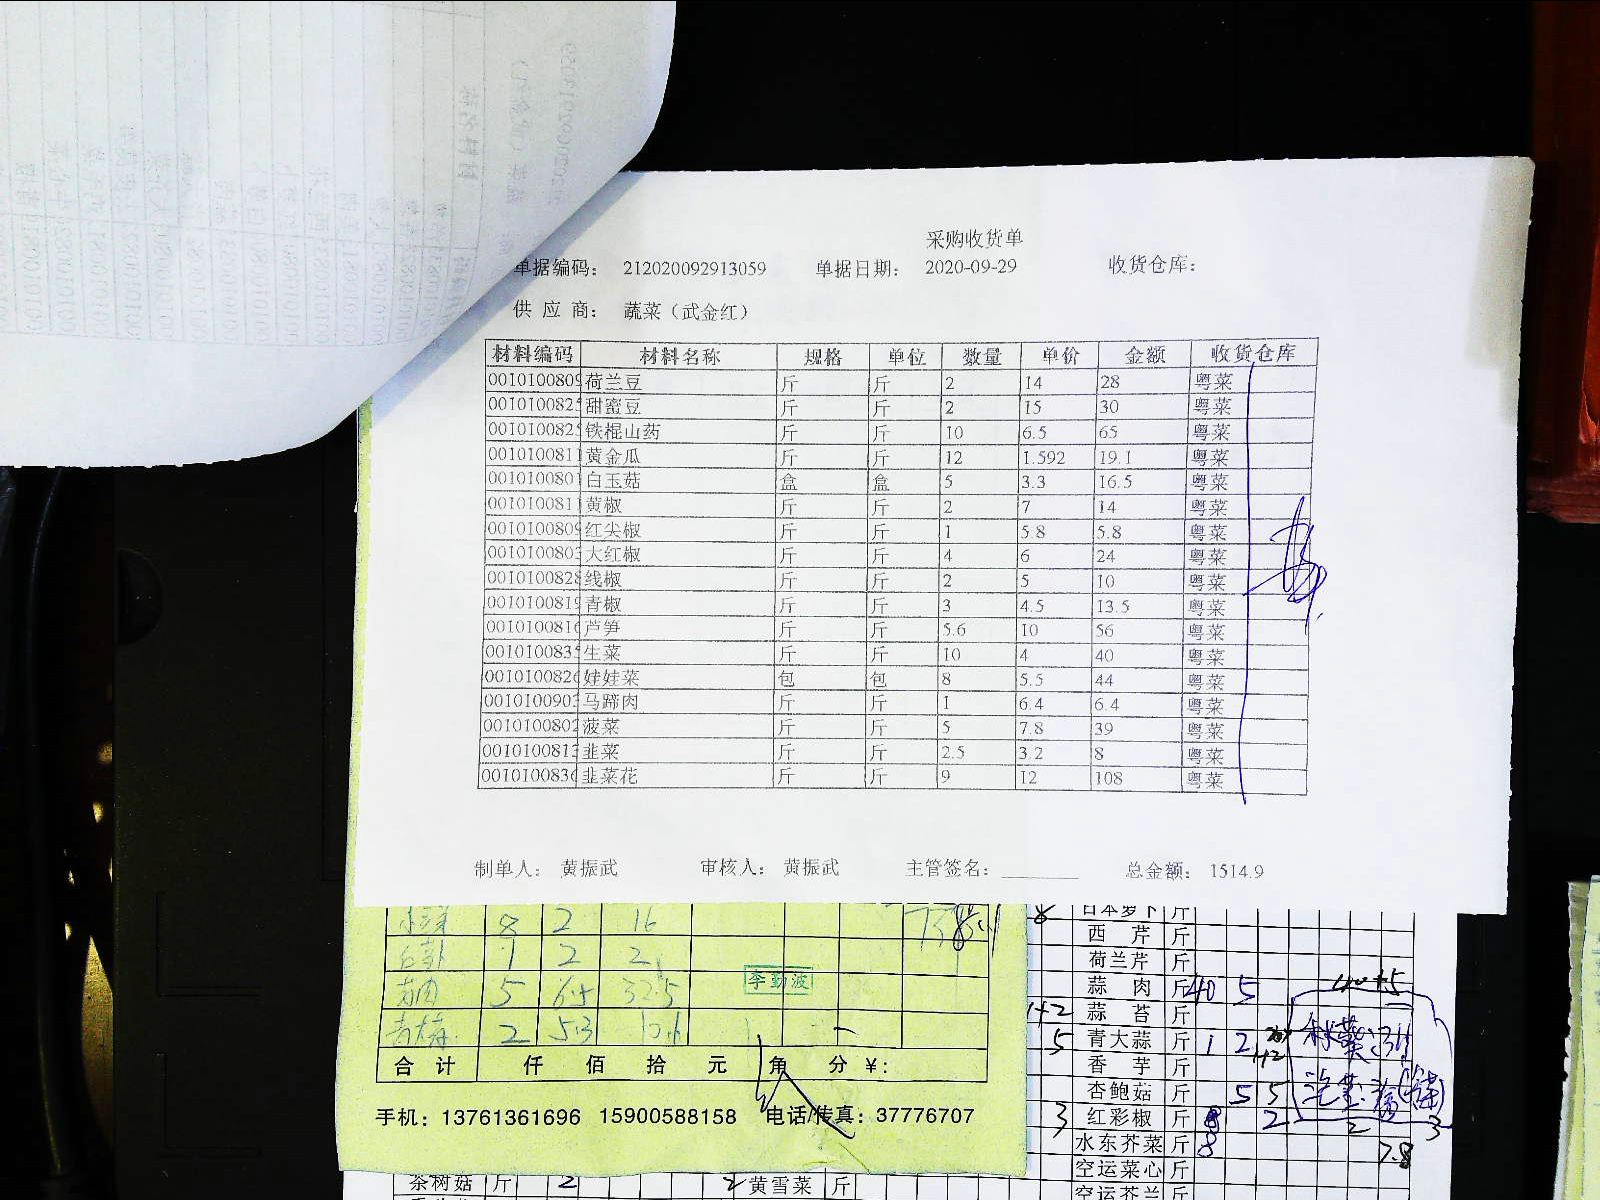 采购收货单
单据编码： 212020092913059 单据日期： 2020-09-29 收货仓库：
供 应 商： 蔬菜（武金红）
材料编码 材料名称 规格 单位 数量 单价 金额 收货仓库
0010100809 荷兰豆 斤 斤 2 14 28 粤菜
001010082 甜蜜豆 斤 斤 2 15 30 粤菜
001010082 铁棍山药 斤 斤 10 6.5 65 粤菜
001010081 黄金瓜 斤 斤 12 1.592 19.1 粤菜
001010080 白玉菇 盒 盒 5 3.3 16.5 粤菜
001010081 黄椒 斤 斤 2 7 14 粤菜
001010080 红尖椒 斤 斤 1 5.8 5.8 粤菜
001010080 大红椒 斤 斤 4 6 24 粤菜
001010082 线椒 斤 斤 2 5 10 粤菜
001010081 青椒 斤 斤 3 4.5 13.5 粤菜
001010081 芦笋 斤 斤 5.6 10 56 粤菜
001010083 生菜 斤 斤 10 4 40 粤菜
001010082 娃娃菜 包 包 8 5.5 44 粤菜
001010090 马蹄肉 斤 斤 1 6.4 6.4 粤菜
001010080 菠菜 斤 斤 5 7.8 39 粤菜
001010081 韭菜 斤 斤 2.5 3.2 8 粤菜
001010083 韭菜花 斤 斤 9 12 108 粤菜
制单人： 黄振武 审核人： 黄振武 主管签名： 总金额： 1514.9
8 2 16
1 2 2
5 6.5 32.5
2 5.3 10.6
李勤波
合 计 仟 佰 拾 元 角 分 ¥:
手机：13761361696 15900588158 电话/传真：37776707
日本萝卜 斤
西 芹 斤
荷兰芹 斤
蒜 肉 斤 40 5
蒜 苔 斤
5 青大蒜 斤 1 2
香 芋 斤
杏鲍菇 斤 5 5
3 红彩椒 斤 8 2
水东芥菜 斤 8 7.8
空运菜心 斤
空运芥兰 斤
茶树菇 斤 2 2 黄雪菜 斤